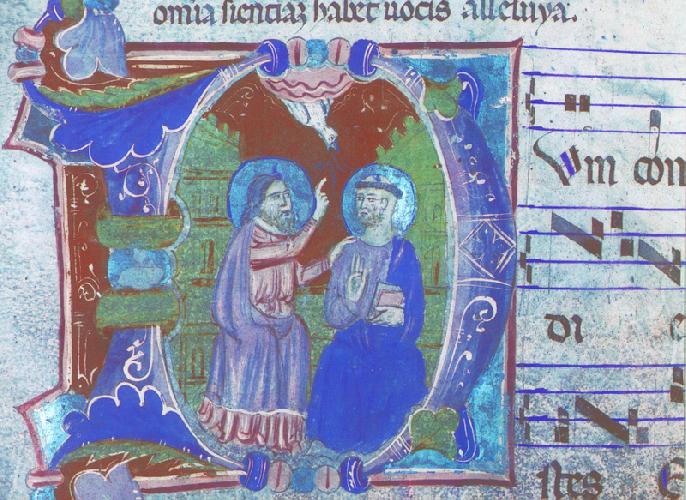 omia sienciaz habet uocis alleluya.
Vm com
di e
stes